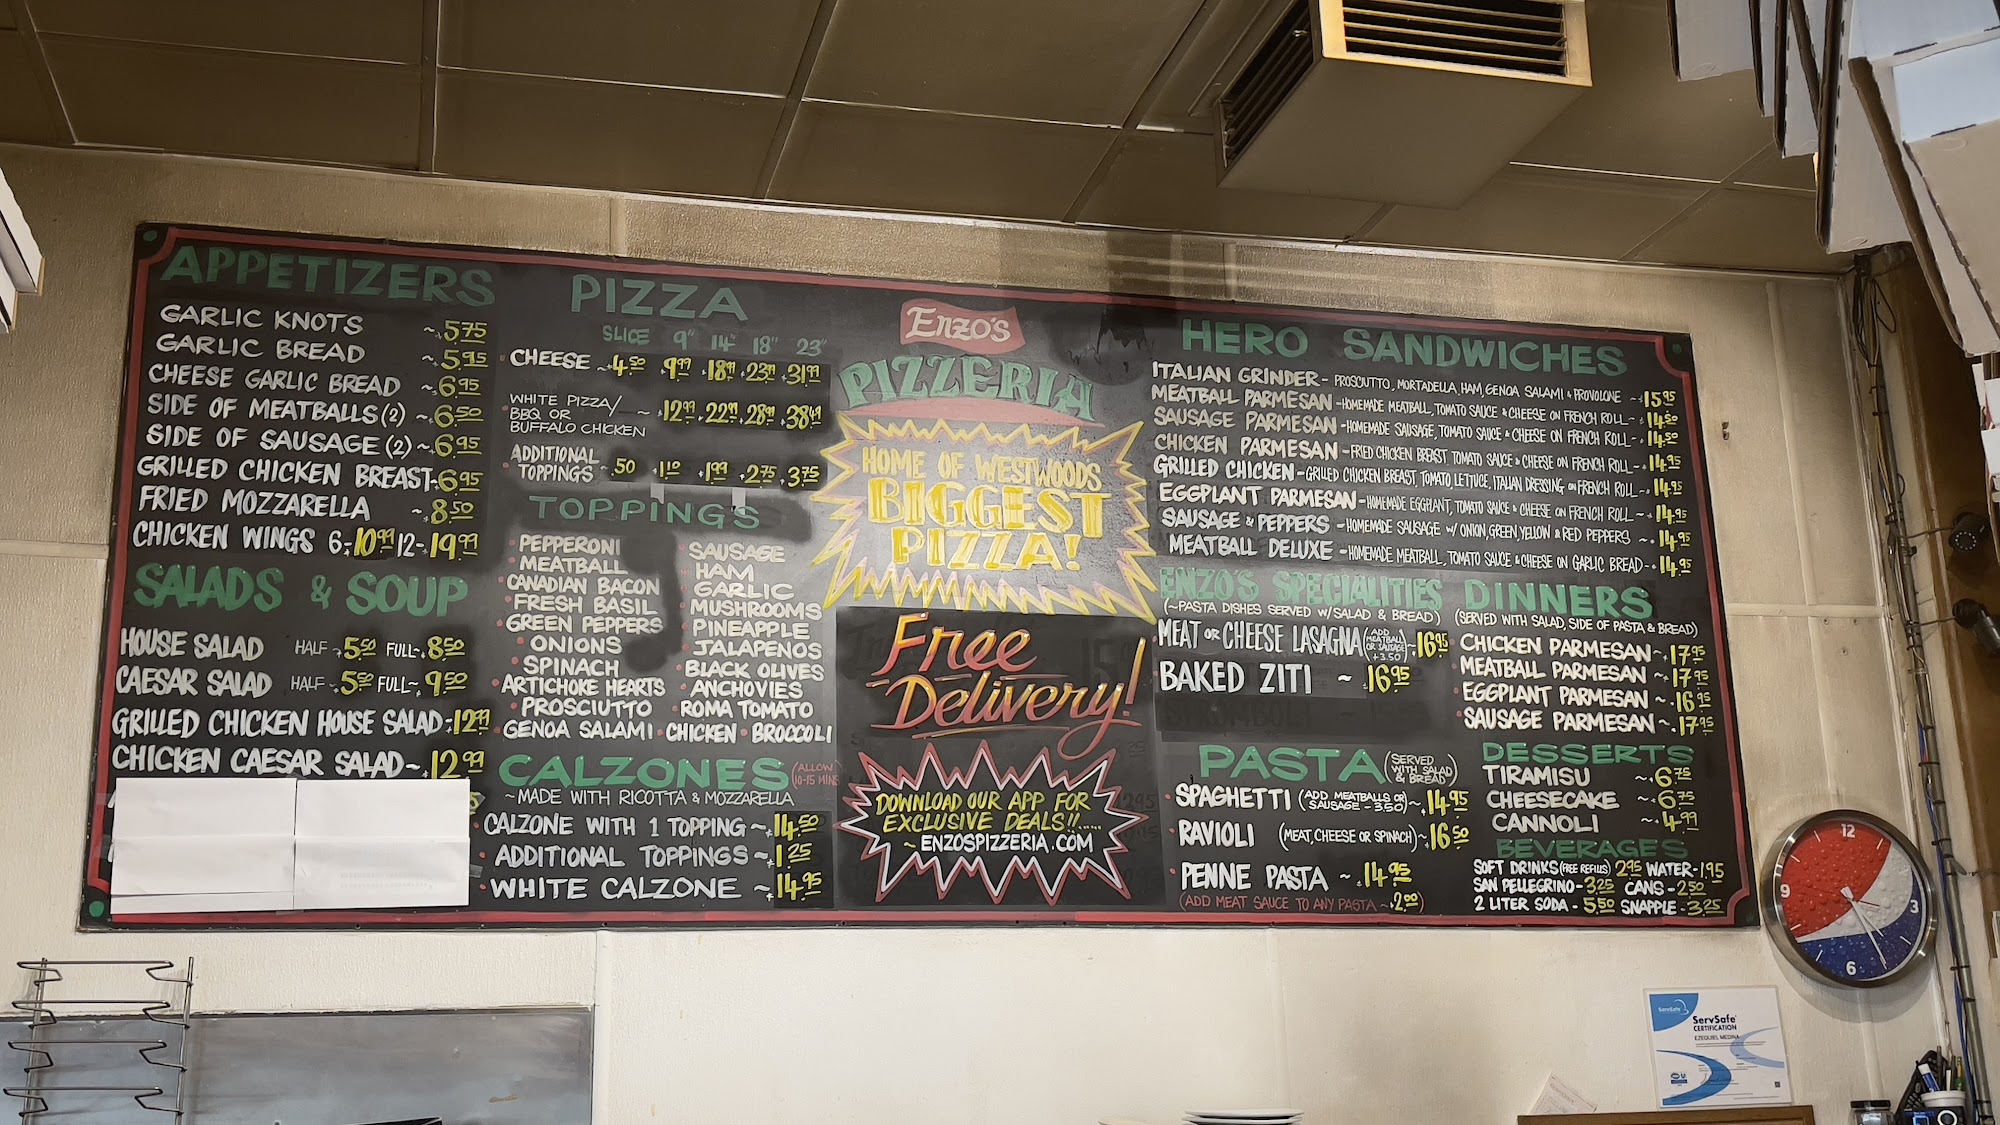 APPETIZERS
GARLIC KNOTS ~ 5.75
GARLIC BREAD ~ 5.95
CHEESE GARLIC BREAD ~ 6.95
SIDE OF MEATBALLS (2) ~ 6.50
SIDE OF SAUSAGE (2) ~ 6.95
GRILLED CHICKEN BREAST ~ 6.95
FRIED MOZZARELLA ~ 8.50
CHICKEN WINGS 6 ~ 10.99 12 ~ 19.99
SALADS & SOUP
HOUSE SALAD HALF ~ 5.50 FULL ~ 8.50
CAESAR SALAD HALF ~ 5.50 FULL ~ 9.50
GRILLED CHICKEN HOUSE SALAD ~ 12.99
CHICKEN CAESAR SALAD ~ 12.99
PIZZA
SLICE 9" 14" 18" 23"
CHEESE ~ 4.50 9.99 18.99 23.99 31.99
WHITE PIZZA/
BBQ OR
BUFFALO CHICKEN ~ 12.99 22.99 28.99 38.49
ADDITIONAL
TOPPINGS ~ .50 1.10 1.99 2.75 3.75
TOPPINGS
PEPPERONI
MEATBALL
CANADIAN BACON
FRESH BASIL
GREEN PEPPERS
ONIONS
SPINACH
ARTICHOKE HEARTS
PROSCIUTTO
SAUSAGE
HAM
GARLIC
MUSHROOMS
PINEAPPLE
JALAPENOS
BLACK OLIVES
ANCHOVIES
ROMA TOMATO
GENOA SALAMI • CHICKEN • BROCCOLI
CALZONES (ALLOW
10-15 MINS)
~ MADE WITH RICOTTA & MOZZARELLA
CALZONE WITH 1 TOPPING ~ 14.50
ADDITIONAL TOPPINGS ~ 1.25
WHITE CALZONE ~ 14.95
Enzo's
PIZZERIA
HOME OF WESTWOODS
BIGGEST
PIZZA!
Free
Delivery!
DOWNLOAD OUR APP FOR
EXCLUSIVE DEALS!!.....
~ ENZOSPIZZERIA.COM
HERO SANDWICHES
ITALIAN GRINDER - PROSCIUTTO, MORTADELLA, HAM, GENOA SALAMI & PROVOLONE ~ 15.95
MEATBALL PARMESAN - HOMEMADE MEATBALL, TOMATO SAUCE & CHEESE ON FRENCH ROLL ~ 14.50
SAUSAGE PARMESAN - HOMEMADE SAUSAGE, TOMATO SAUCE & CHEESE ON FRENCH ROLL ~ 14.50
CHICKEN PARMESAN - FRIED CHICKEN BREAST TOMATO SAUCE & CHEESE ON FRENCH ROLL ~ 14.95
GRILLED CHICKEN - GRILLED CHICKEN BREAST, TOMATO, LETTUCE, ITALIAN DRESSING ON FRENCH ROLL ~ 14.95
EGGPLANT PARMESAN - HOMEMADE EGGPLANT, TOMATO SAUCE & CHEESE ON FRENCH ROLL ~ 14.95
SAUSAGE & PEPPERS - HOMEMADE SAUSAGE W/ ONION, GREEN, YELLOW & RED PEPPERS ~ 14.95
MEATBALL DELUXE - HOMEMADE MEATBALL, TOMATO SAUCE & CHEESE ON GARLIC BREAD ~ 14.95
ENZO'S SPECIALITIES
(~PASTA DISHES SERVED W/SALAD & BREAD)
MEAT OR CHEESE LASAGNA (ADD MEATBALL OR SAUSAGE +3.50) ~ 16.95
BAKED ZITI ~ 16.95
DINNERS
(SERVED WITH SALAD, SIDE OF PASTA & BREAD)
CHICKEN PARMESAN ~ 17.95
MEATBALL PARMESAN ~ 17.95
EGGPLANT PARMESAN ~ 16.95
SAUSAGE PARMESAN ~ 17.95
PASTA (SERVED
WITH SALAD
& BREAD)
SPAGHETTI (ADD MEATBALLS OR SAUSAGE - 3.50) ~ 14.95
RAVIOLI (MEAT, CHEESE OR SPINACH) ~ 16.50
PENNE PASTA ~ 14.95
(ADD MEAT SAUCE TO ANY PASTA ~ 2.00)
DESSERTS
TIRAMISU ~ 6.75
CHEESECAKE ~ 6.75
CANNOLI ~ 4.99
BEVERAGES
SOFT DRINKS (FREE REFILLS) 2.95 WATER - 1.95
SAN PELLEGRINO - 3.25 CANS - 2.50
2 LITER SODA - 5.50 SNAPPLE - 3.25
12
3
6
9
ServSafe
ServSafe
CERTIFICATION
EZEQUIEL MEDINA